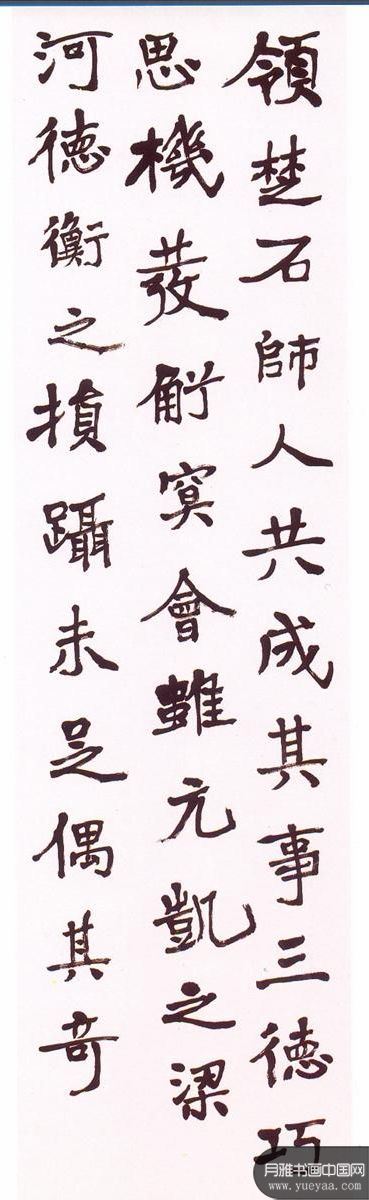 領楚石師人共成其事三德巧
思機發解冥會雖元凱之梁
河德衡之損躡未足偶其奇
月雅书画中国网
www.yueyaa.com